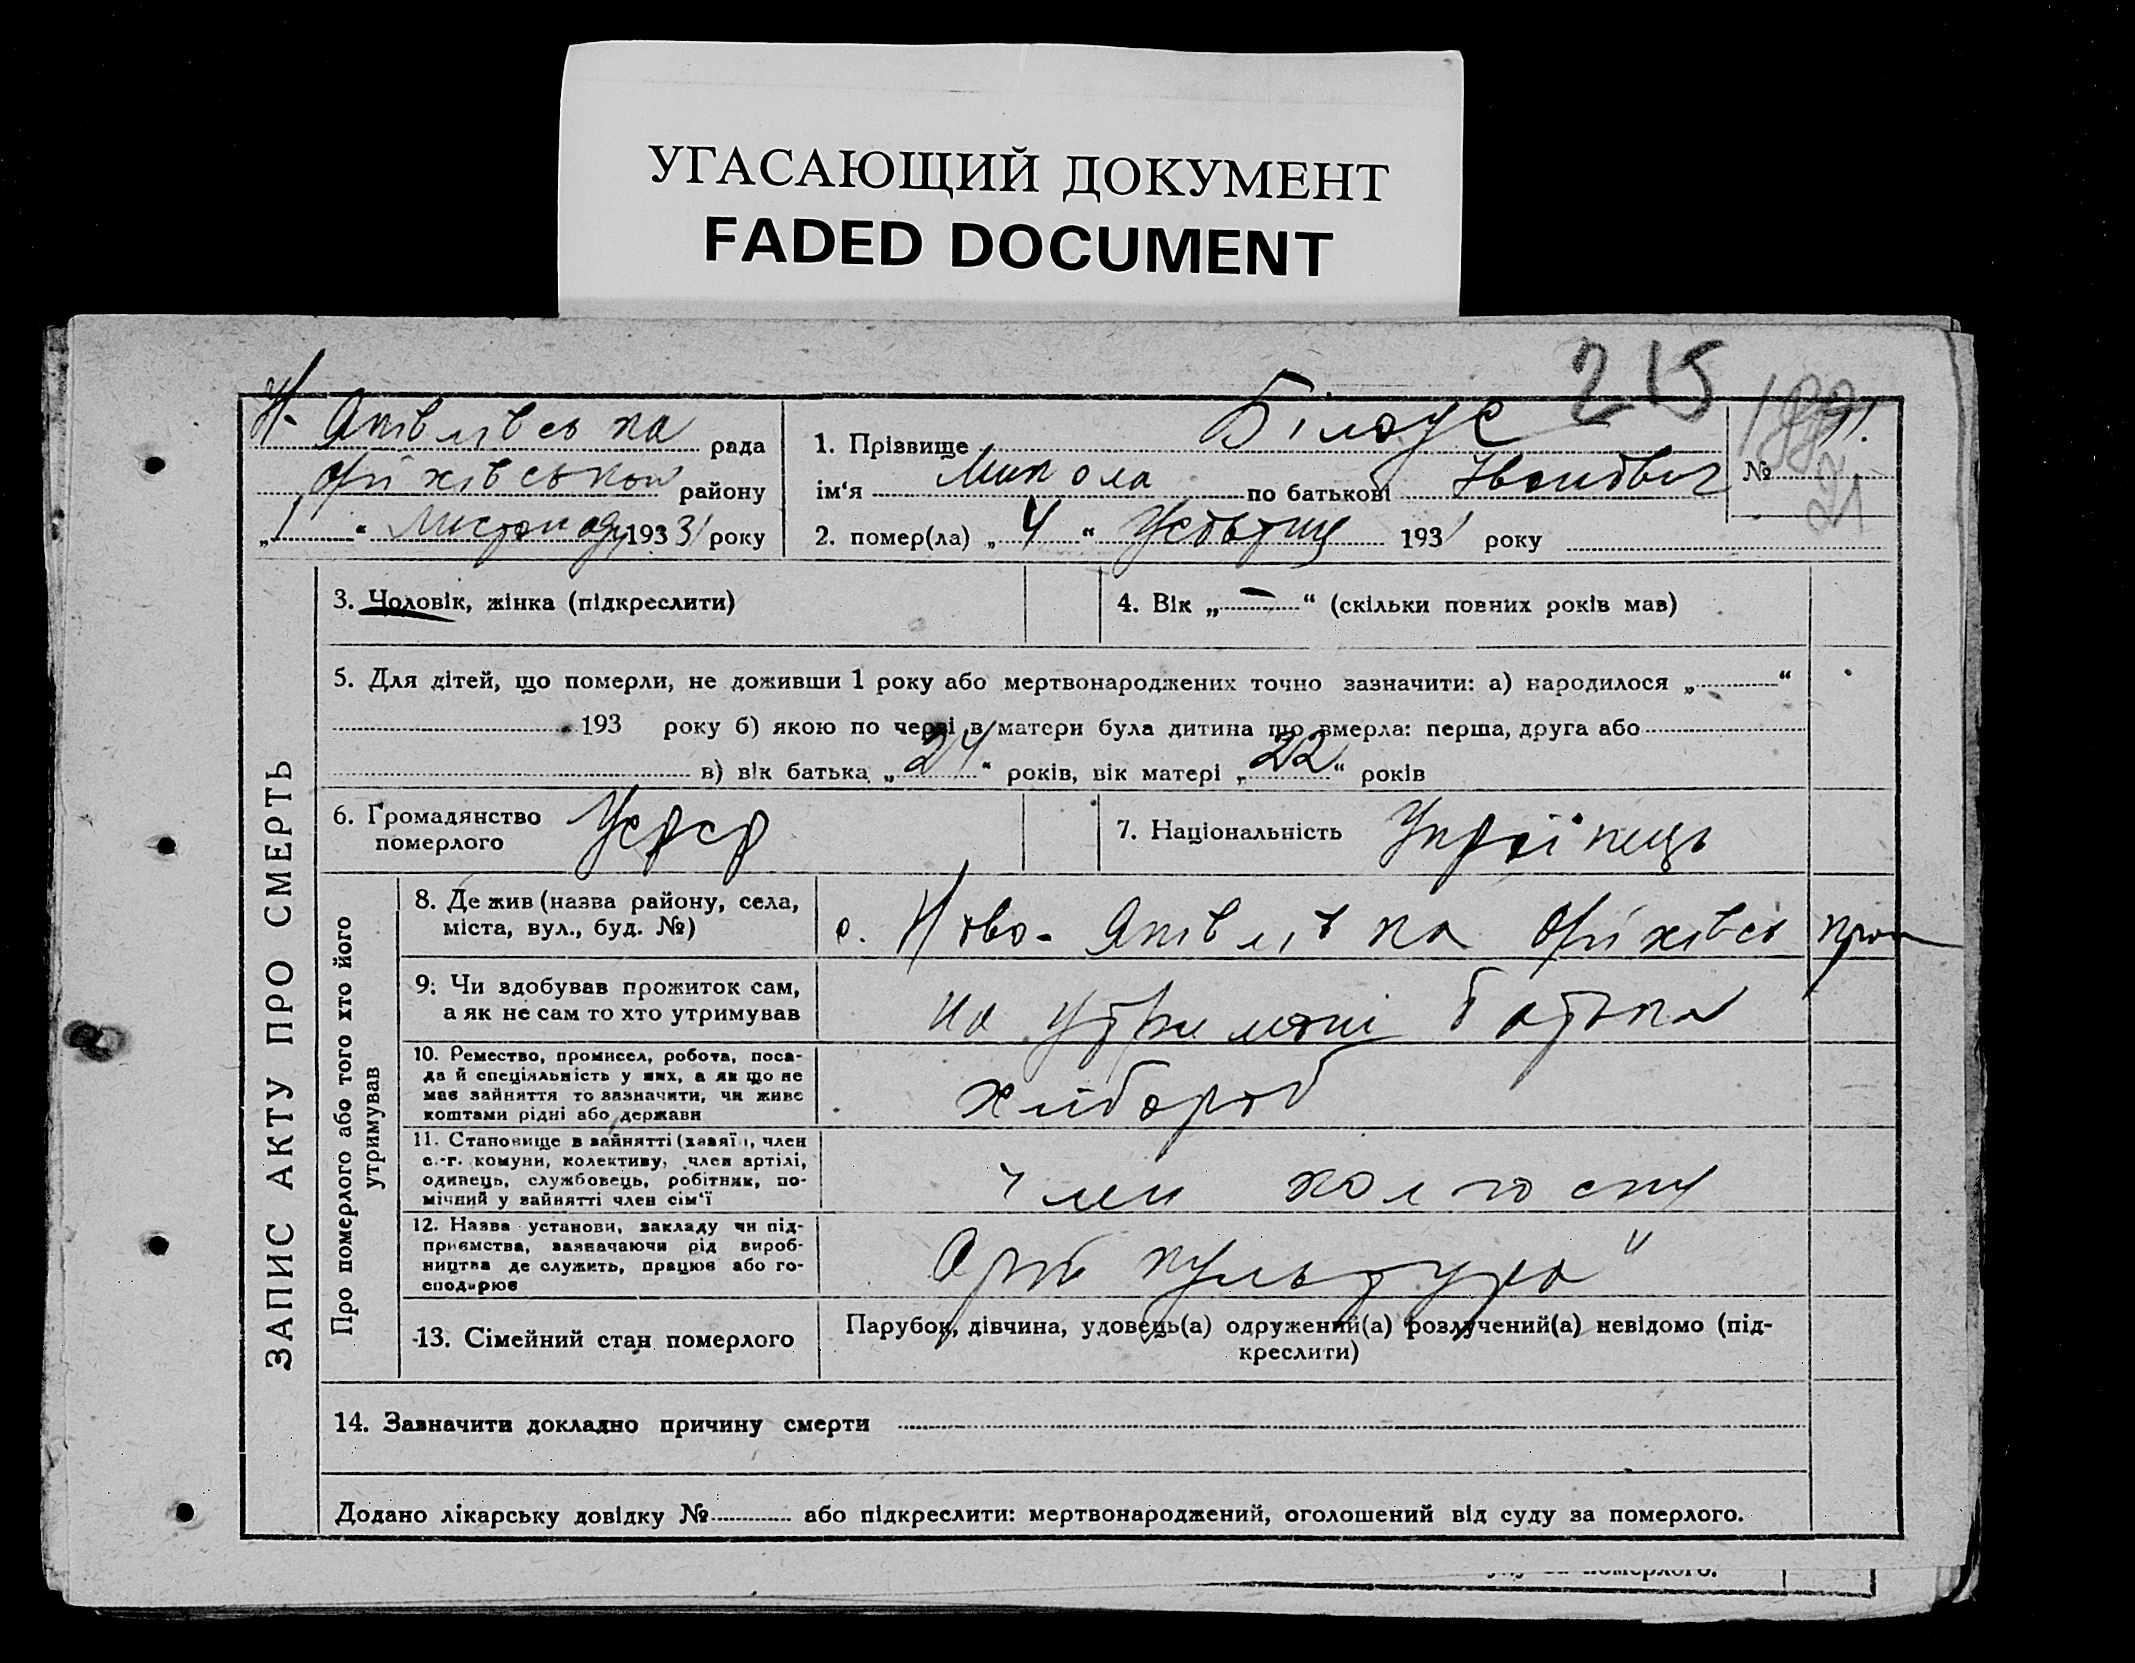 УГАСАЮЩИЙ ДОКУМЕНТ
FADED DOCUMENT
215
Н-Яківлівська рада
Оріхівського району
„1“ Листопаду 1931 року
1. Прізвище Білоус
ім‘я Микола по батькові Іванович
2. помер(ла) „4“ 1931 року
№ 21
ЗАПИС АКТУ ПРО СМЕРТЬ
3. Чоловік, жінка (підкреслити)
4. Вік „—“ (скільки повних років мав)
5. Для дітей, що померли, не доживши 1 року або мертвонароджених точно зазначити: а) народилося „ “
193 року б) якою по черзі в матери була дитина що вмерла: перша, друга або
в) вік батька „24“ років, вік матері „22“ років
6. Громадянство померлого УСРСР
7. Національність Українець
Про померлого або того хто його утримував
8. Де жив (назва району, села,
міста, вул., буд. №)
с. Ново-Яківлівка Оріхівськ
9. Чи здобував прожиток сам,
а як не сам то хто утримував
на утриманні батька
10. Ремество, промисел, робота, поса-
да й спеціяльність у них, а як що не
має зайняття то зазначити, чи живе
коштами рідні або держави
хлібороб
11. Становище в зайнятті (хазяїн, член
с.-г. комуни, колективу, член артілі,
одинець, службовець, робітник, по-
мічний у зайнятті член сім‘ї
член колгоспу
12. Назва установи, закладу чи під-
приємства, зазначаючи рід вироб-
ництва де служить, працює або го-
сподарює
культура"
13. Сімейний стан померлого
Парубок, дівчина, удовець(а) одружений(а) розлучений(а) невідомо (під-
креслити)
14. Зазначити докладно причину смерти
Додано лікарську довідку № або підкреслити: мертвонароджений, оголошений від суду за померлого.
за померлого.